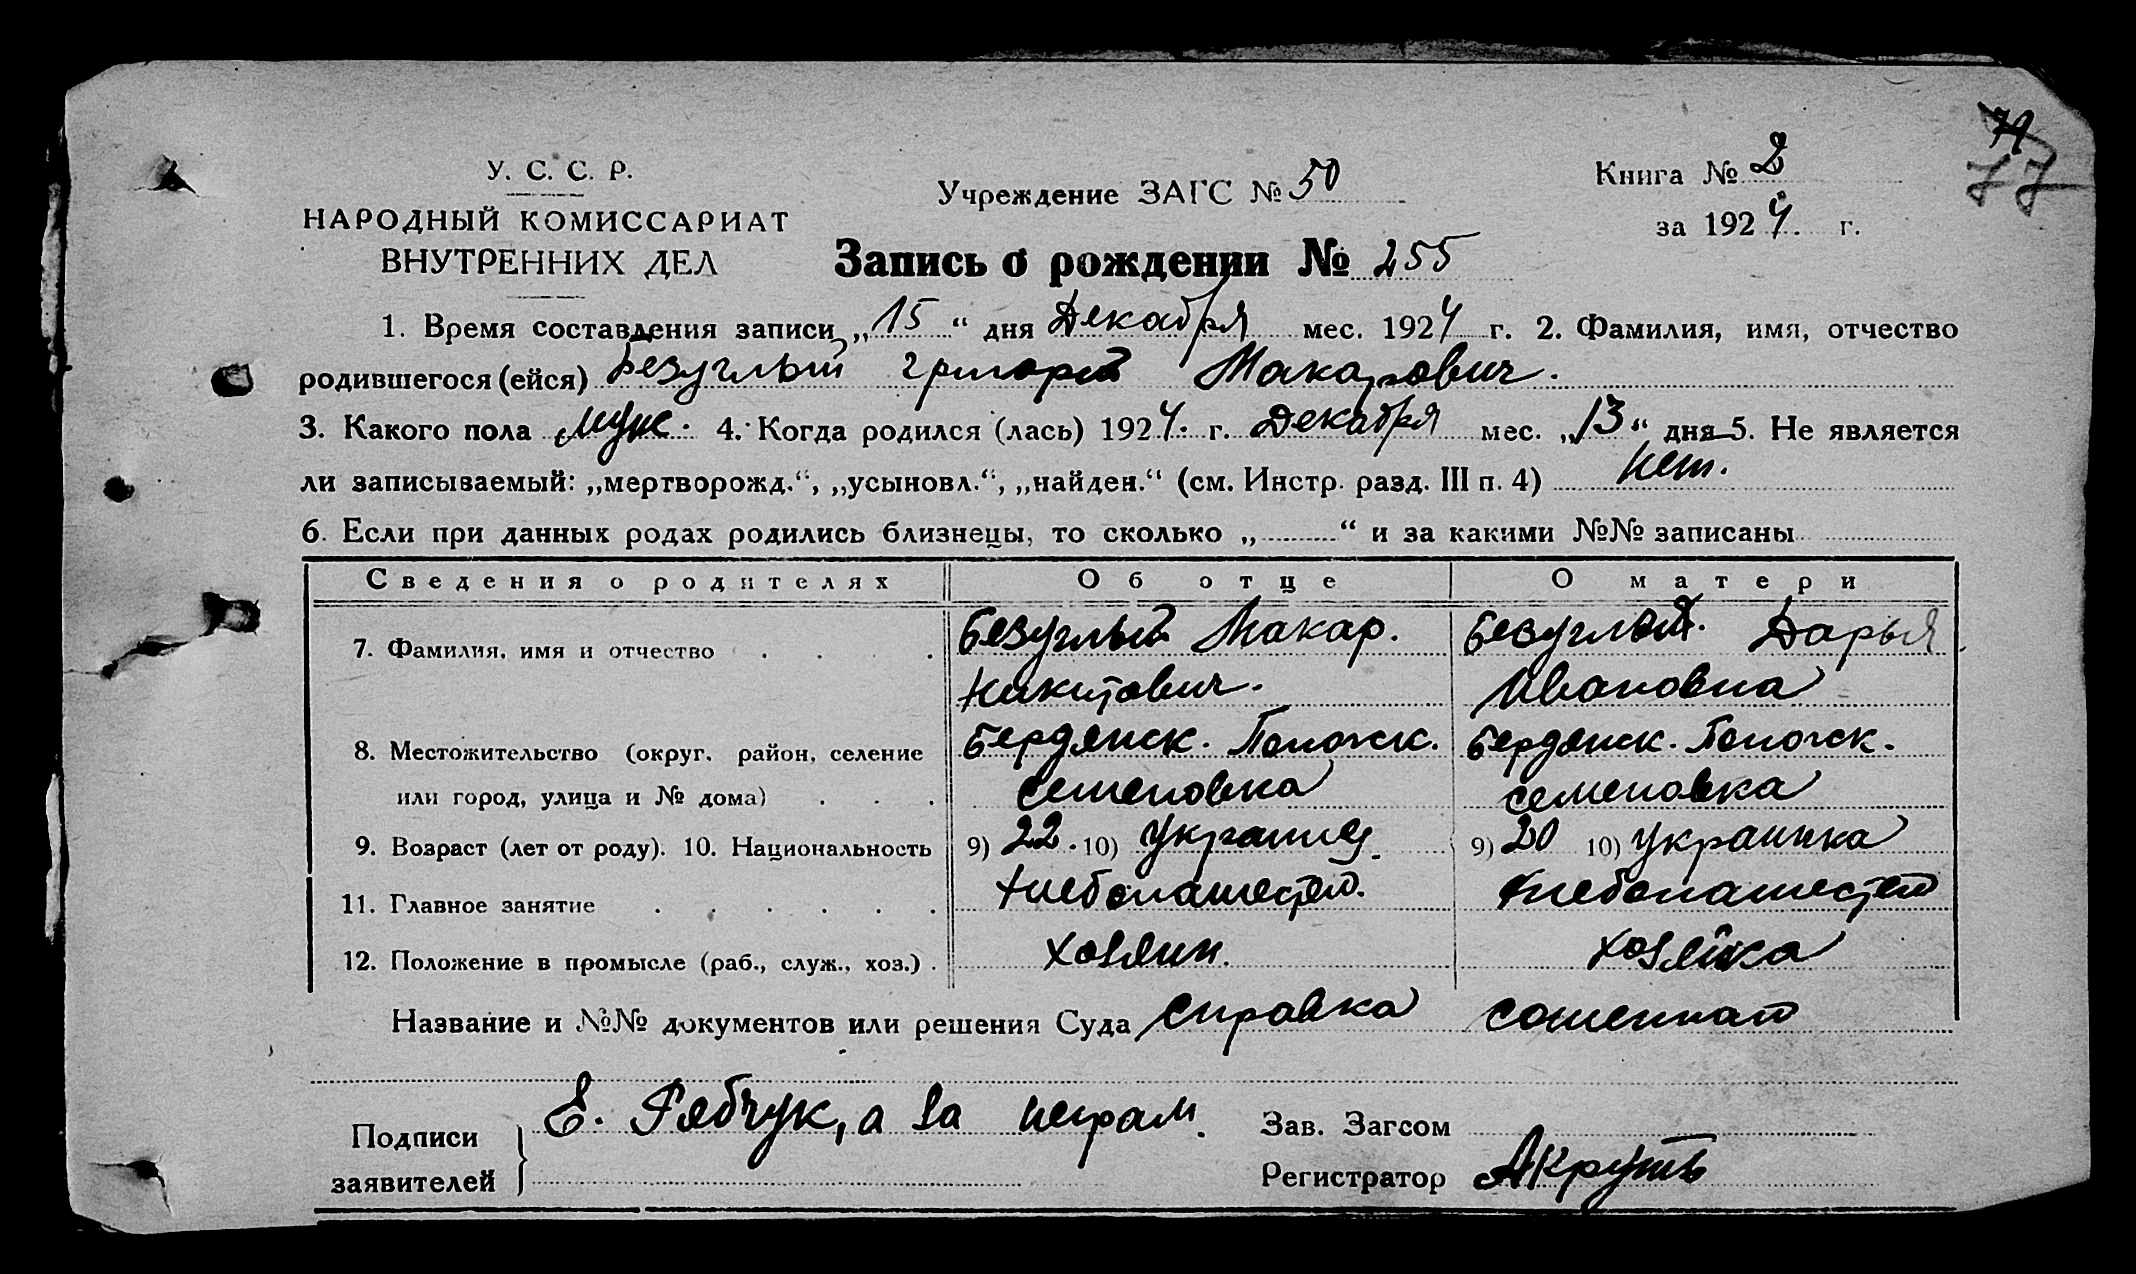 77
У. С. С. Р.
НАРОДНЫЙ КОМИССАРИАТ
ВНУТРЕННИХ ДЕЛ
Учреждение ЗАГС № 50
Книга № 2
за 1924 г.
Запись о рождении № 255
1. Время составления записи „15“ дня Декабря мес. 1924 г. 2. Фамилия, имя, отчество
родившегося (ейся) Безуглый Григорий Макарович.
3. Какого пола муж. 4. Когда родился (лась) 1924 г. Декабря мес. „13“ дня 5. Не является
ли записываемый: „мертворожд.“, „усыновл.“, „найден.“ (см. Инстр. разд. III п. 4) нет.
6. Если при данных родах родились близнецы, то сколько „ “ и за какими №№ записаны
Сведения о родителях Об отце О матери
7. Фамилия, имя и отчество Безуглый Макар. Безуглый. Дарья
Никитович. Ивановна
8. Местожительство (округ, район, селение Бердянск. Пологск. Бердянск. Пологск.
или город, улица и № дома) Семеновка Семеновка
9. Возраст (лет от роду). 10. Национальность 9) 22. 10) Украинец 9) 20 10) Украинка
11. Главное занятие Хлебопашеств. Хлебопашеств
12. Положение в промысле (раб., служ., хоз.) Хозяин. Хозяйка
Название и №№ документов или решения Суда Справка
Подписи заявителей Е. Рябчук, а за неграм.
Зав. Загсом
Регистратор АКруть